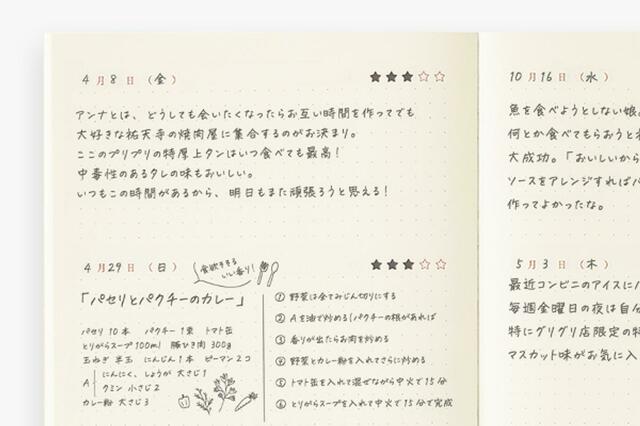 4月8日（金）
アンナとは、どうしても会いたくなったらお互い時間を作ってでも
大好きな祐天寺の焼肉屋に集合するのがお決まり。
ここのプリプリの特厚上タンはいつ食べても最高！
中毒性のあるタレの味もおいしい。
いつもこの時間があるから、明日もまた頑張ろうと思える！
4月29日（日）
食欲そそる
いい香り！
「パセリとパクチーのカレー」
パセリ 10本　パクチー 1束　トマト缶
とりがらスープ 100ml　豚ひき肉 300g
玉ねぎ 半玉　にんじん 1本　ピーマン 2コ
A にんにく、しょうが 大さじ1
クミン 小さじ2
カレー粉 大さじ3
① 野菜は全てみじん切りにする
② Aを油で炒める(パクチーの根があれば
③ 香りが出たらお肉を炒める
④ 野菜とカレー粉を入れてさらに炒める
⑤ トマト缶を入れて混ぜながら中火で15分
⑥ とりがらスープを入れて中火で15分で完成
10月16日（水）
魚を食べようとしない娘。
何とか食べてもらおうと
大成功。「おいしいから
ソースをアレンジすれば
作ってよかったな。
5月3日（木）
最近コンビニのアイスに
毎週金曜日の夜は自分
特にグリグリ店限定の
マスカット味がお気に入